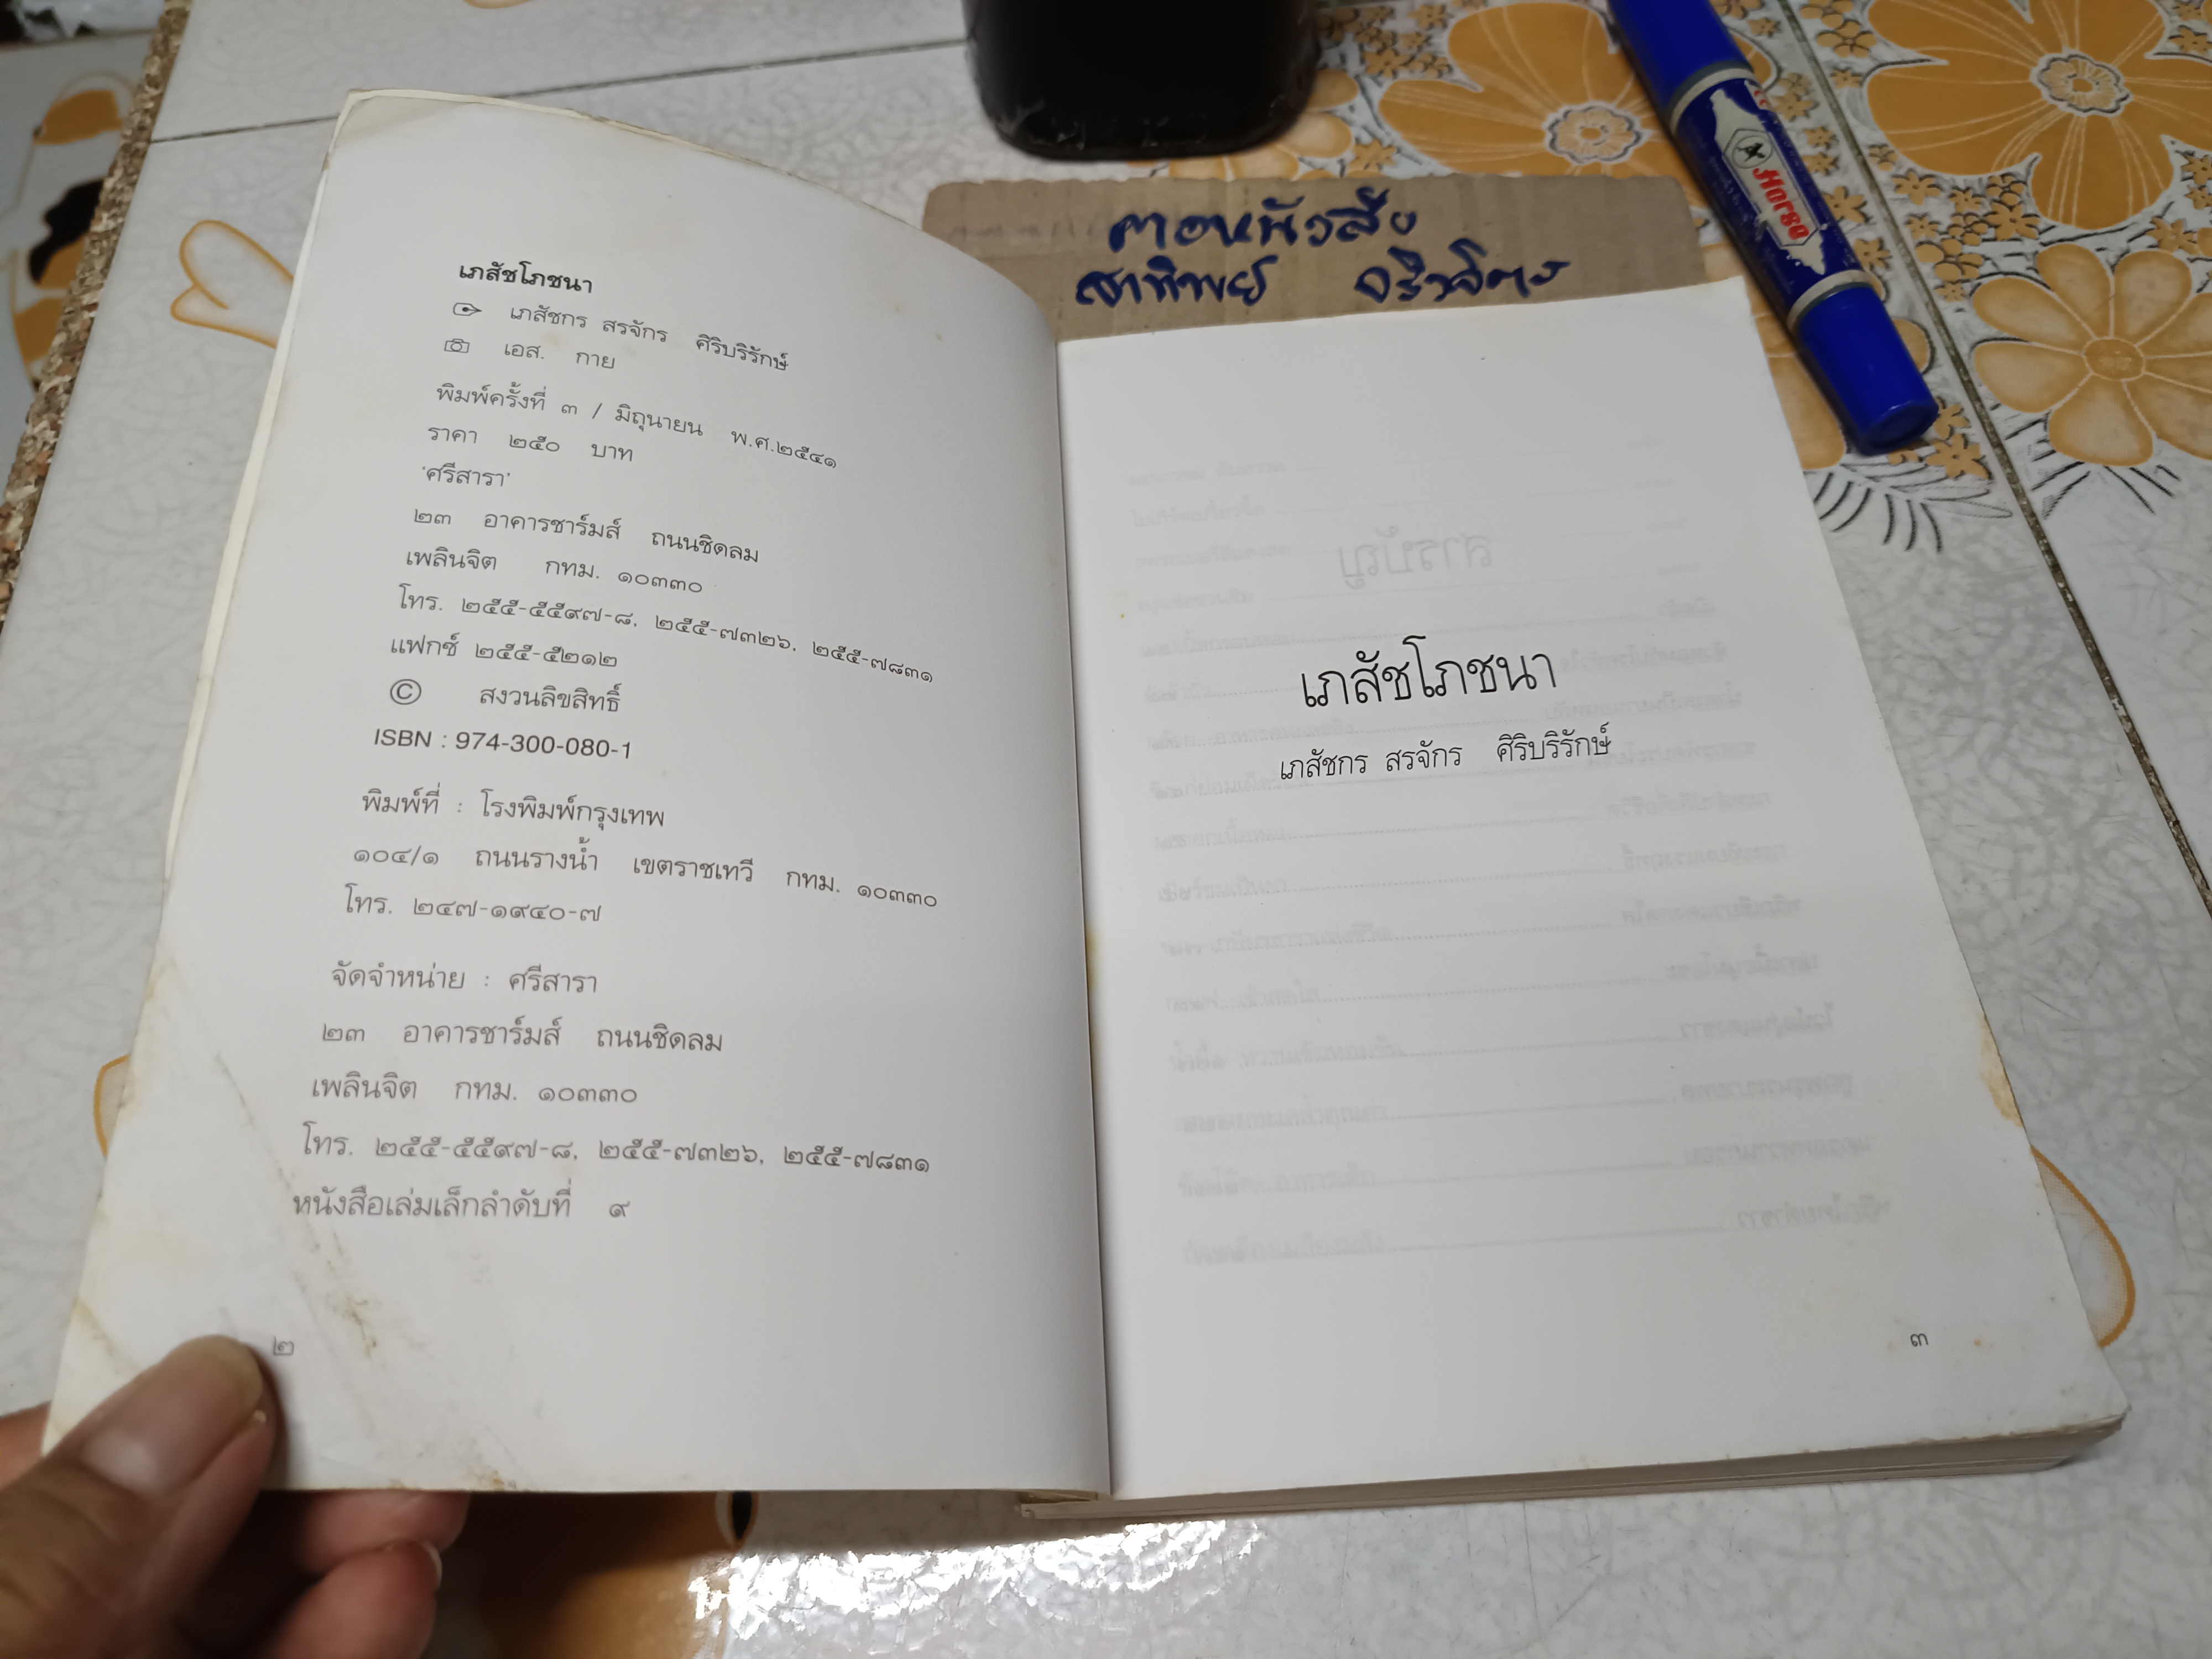 เภสัชโภชนา
เภสัชกร สรจักร ศิริบริรักษ์
เอส. กาย
พิมพ์ครั้งที่ ๓ / มิถุนายน พ.ศ.๒๕๔๑
ราคา ๒๕๐ บาท
'ศรีสารา'
๒๓ อาคารชาร์มส์ ถนนชิดลม
เพลินจิต กทม. ๑๐๓๓๐
โทร. ๒๕๕-๕๕๙๗-๘, ๒๕๕-๗๓๒๖, ๒๕๕-๗๘๓๑
แฟกซ์ ๒๕๕-๕๒๑๒
© สงวนลิขสิทธิ์
ISBN : 974-300-080-1
พิมพ์ที่ : โรงพิมพ์กรุงเทพ
๑๐๔/๑ ถนนรางน้ำ เขตราชเทวี กทม. ๑๐๓๓๐
โทร. ๒๔๗-๑๙๔๐-๗
จัดจำหน่าย : ศรีสารา
๒๓ อาคารชาร์มส์ ถนนชิดลม
เพลินจิต กทม. ๑๐๓๓๐
โทร. ๒๕๕-๕๕๙๗-๘, ๒๕๕-๗๓๒๖, ๒๕๕-๗๘๓๑
หนังสือเล่มเล็กลำดับที่ ๙
๒
Horse
เภสัชโภชนา
เภสัชกร สรจักร ศิริบริรักษ์
สารบัญ
๓